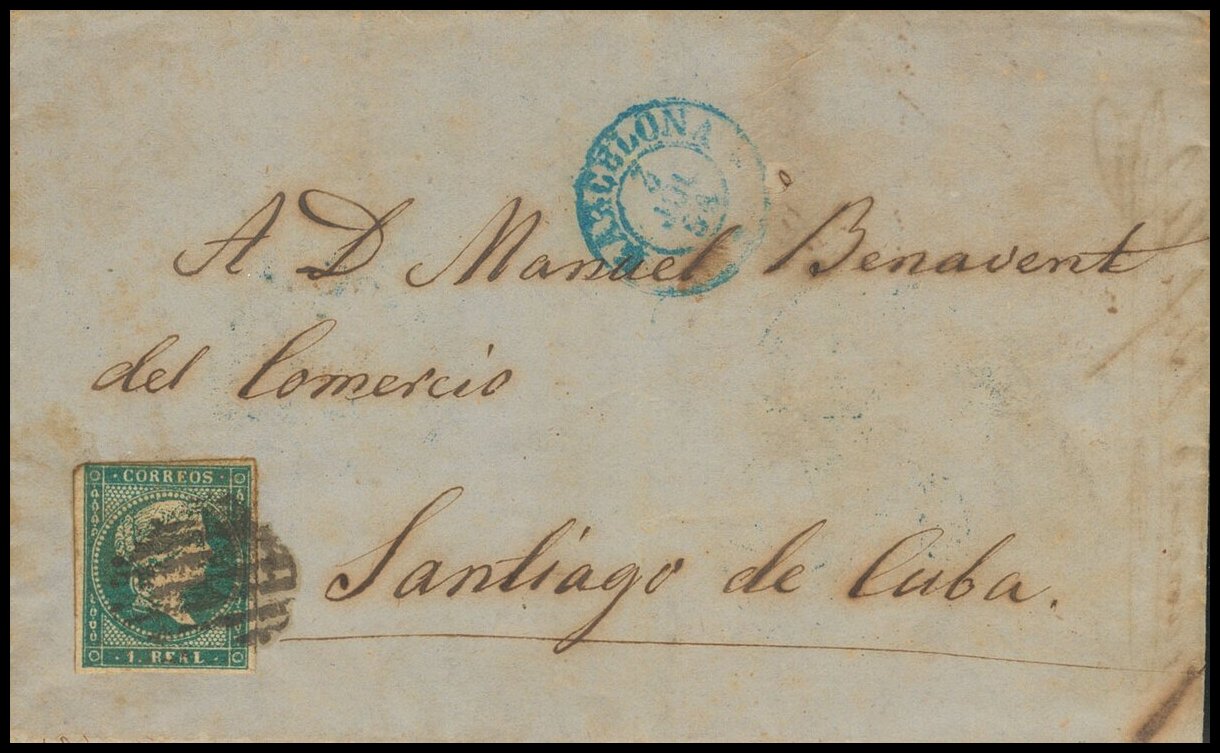 BARCELONA
A D Manuel Benavent
del Comercio
CORREOS
Santiago de Cuba.
1. REAL